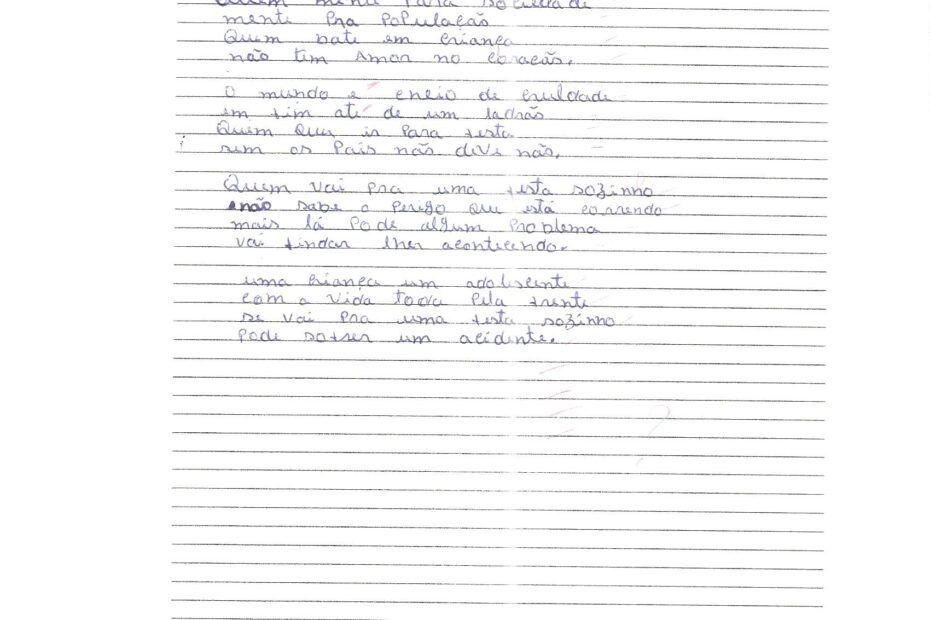 Quem mente para sociedade
mente pra população
Quem bate em criança
não tem amor no coração.
O mundo e cheio de cruldade
em tim até de um ladrão
Quem quer ir para festa
sem os pais não deve não.
Quem vai pra uma festa sozinho
não sabe o perigo que está correndo
mais lá pode algum problema
vai tindar lher acontecendo.
uma criança um adolescente
com a vida toda pela frente
se vai pra uma festa sozinho
pode sofrer um acidente.